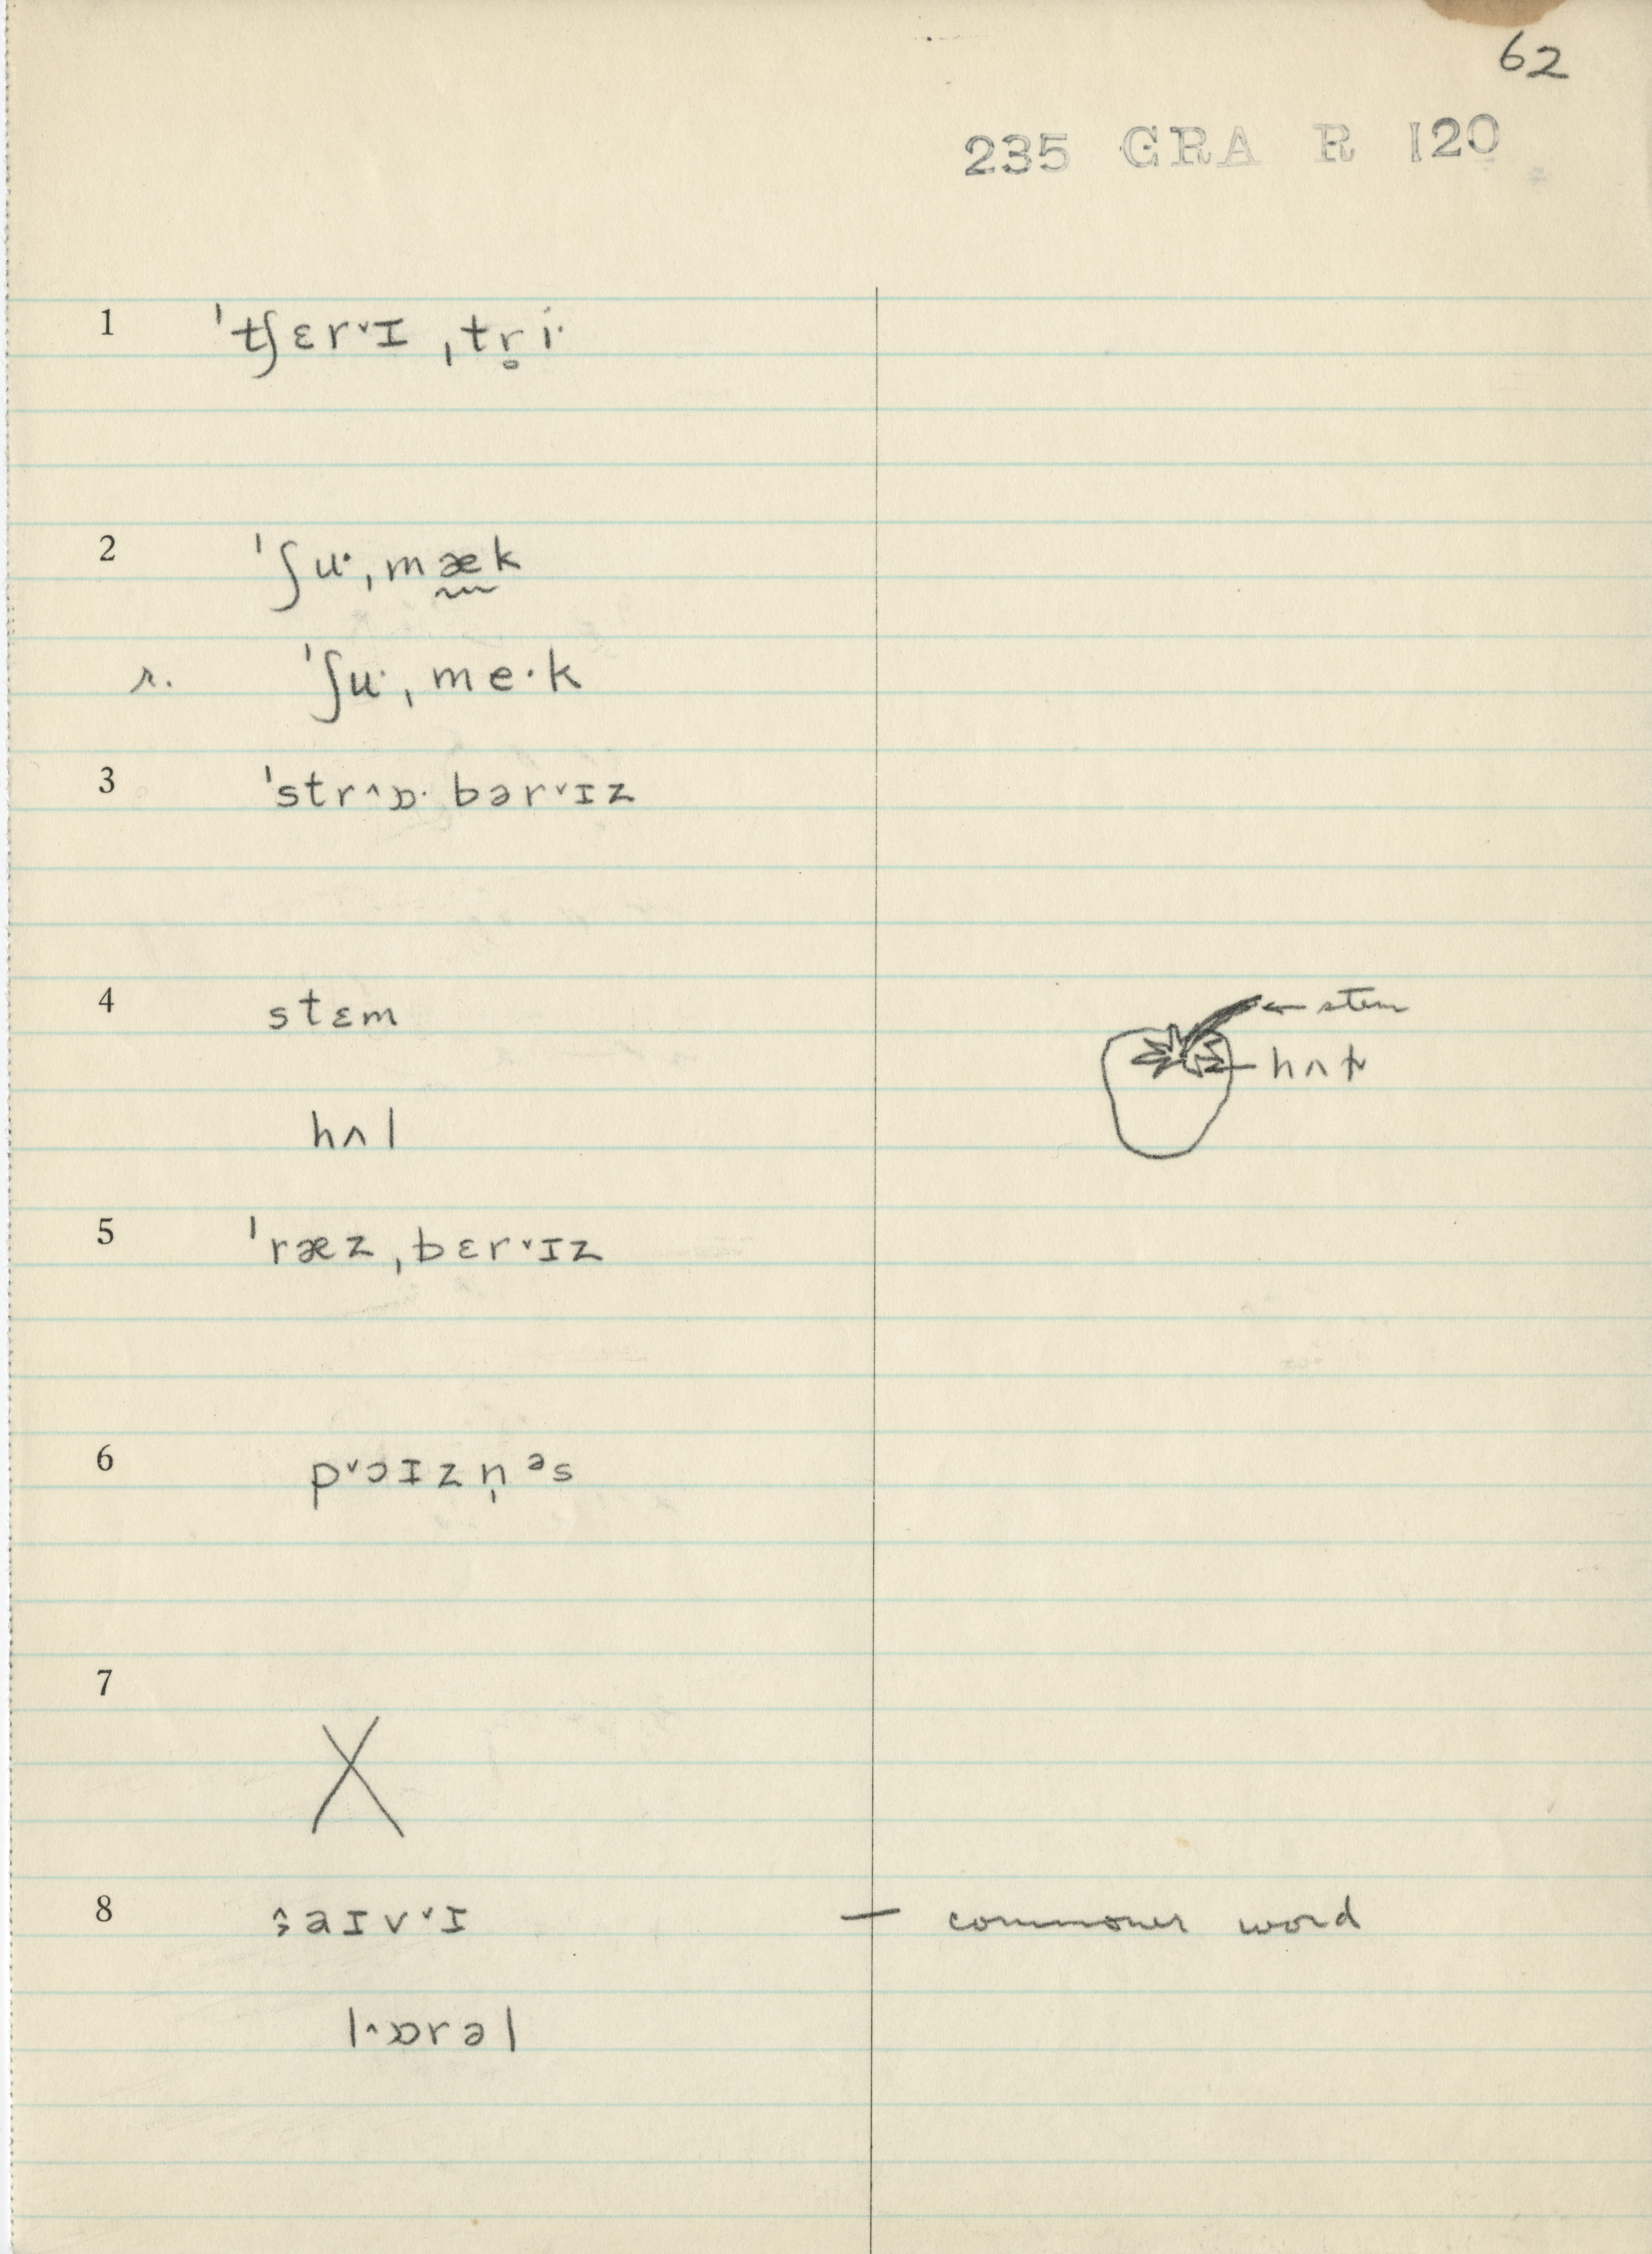 62
235 GRA R 120
1 ˈtʃɛr˅ɪ ˌtr̥i·
2 ˈʃu·ˌmæ̰k
r. ˈʃu·ˌme·k
3 ˈstr^ɒ· bər˅ɪz
4 stɛm
← stem
hʌɫ
hʌl
5 ˈræzˌbɛr˅ɪz
6 p˅ɔɪzn̩ᵊs
7 X
8 aɪv˅ɪ — commoner word
l^ɒrəl